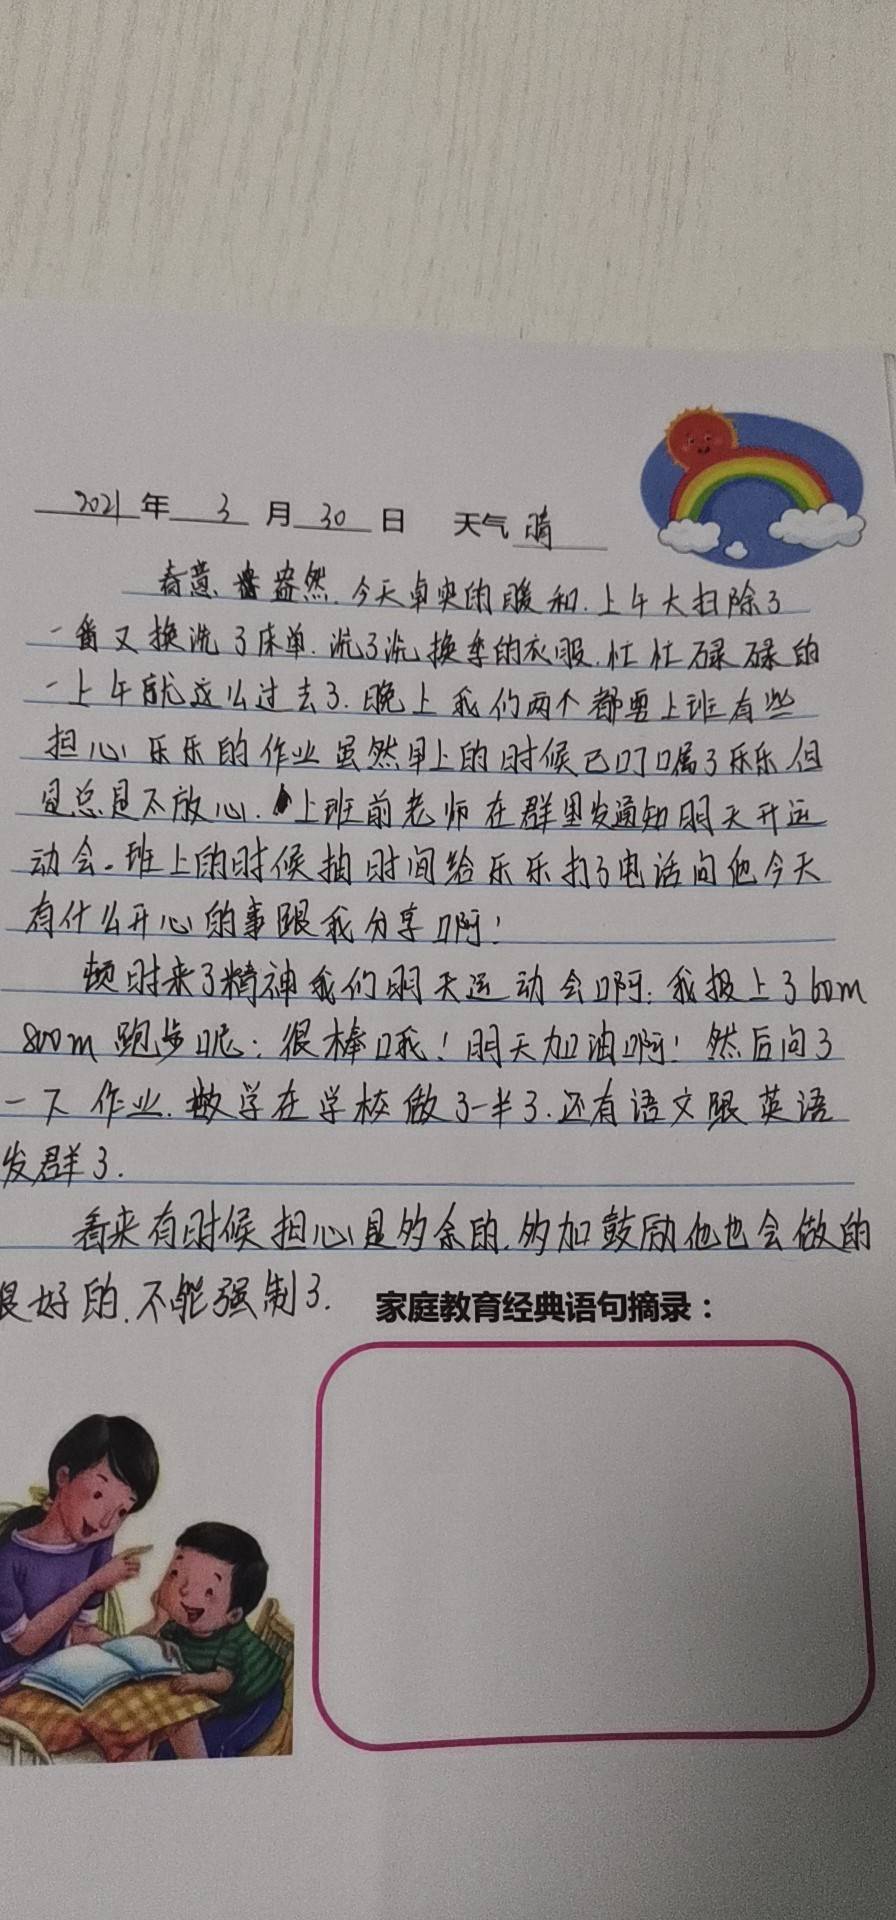 2021年 3 月 30 日 天气 晴
春意盎然.今天卓突的暖和.上午大扫除了
一番又换洗了床单.洗了洗换季的衣服.忙忙碌碌的
一上午就这么过去了.晚上我们两个都要上班有些
担心乐乐的作业虽然早上的时候已叮嘱了乐乐但
是总是不放心.上班前老师在群里发通知明天开运
动会。班上的时候抽时间给乐乐打了电话问他今天
有什么开心的事跟我分享啊!
顿时来了精神我们明天运动会啊:我报上了60m
800m跑步呢:很棒哦!明天加油啊!然后问了
一下作业.数学在学校做了一半了.还有语文跟英语
发群了.
看来有时候担心是多余的.多加鼓励他也会做的
很好的.不能强制了.
家庭教育经典语句摘录: